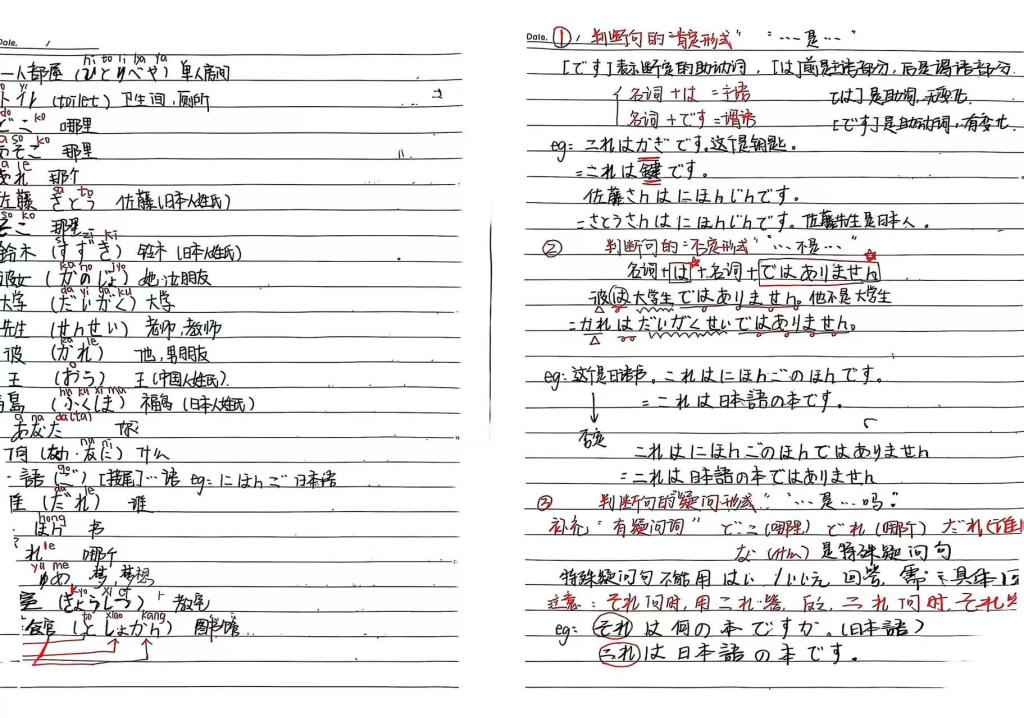 Date. /
hi to li ba ya
一人部屋 (ひとりべや) 单人房间
トイレ (toilet) 卫生间,厕所
do ko
どこ 哪里
a so ko
あそこ 那里
a le
あれ 那个
sa to
佐藤 さとう 佐藤(日本人姓氏)
so ko
そこ 那里
zi ki
鈴木 (すずき) 铃木 (日本人姓氏)
ka no jyo
彼女 (かのじょ) 她,女朋友
da yi ga ku
大学 (だいがく) 大学
先生 (せんせい) 老师,教师
ka le
彼 (かれ) 他,男朋友
o
王 (おう) 王 (中国人姓氏).
hu ku xi ma
島 (ふくしま) 福島 (日本人姓氏)
a na da(ta)
あなた 你
na ni
何 (なん·なに) 什么
go
語 (ご) [接尾]…语 eg: にほんご 日本语
da le
(だれ) 谁
hong
ほん 书
le
れ 哪个
yu me
ゆめ 梦,梦想
kyo xi ci
室 (きょうしつ) 教室
to xiao kang
(としょかん) 图书馆
Date. ①, 判断句的"肯定形式" "…是…"
[です]表示断定的助动词,[は]前是主语部分,后是谓语部分.
名词+は=主语 [は]是助词,无变化.
名词+です=谓语 [です]是助动词,有变化.
eg: これはかぎです.这个是钥匙。
=これは鍵です。
佐藤さんはにほんじんです。
=さとうさんはにほんじんです。佐藤先生是日本人。
② 判断句的"否定形式" "…不是…"
名词+は+名词+ではありません
彼は大学生ではありません。他不是大学生
=かれはだいがくせいではありません。
eg:这个是日语书。これはにほんごのほんです。
=これは日本語の本です。
否定
これはにほんごのほんではありません
=これは日本語の本ではありません
③ 判断句的"疑问形式" "…是…吗"
补充:"有疑问词" どこ(哪里) どれ(哪个) だれ(谁)
な (什么) 是特殊疑问句
特殊疑问句不能用はい/いいえ 回答, 需 具体
注意:それ问时,用これ答,反之,これ问时,それ
eg: それは何の本ですか.(日本語)
これは日本語の本です。